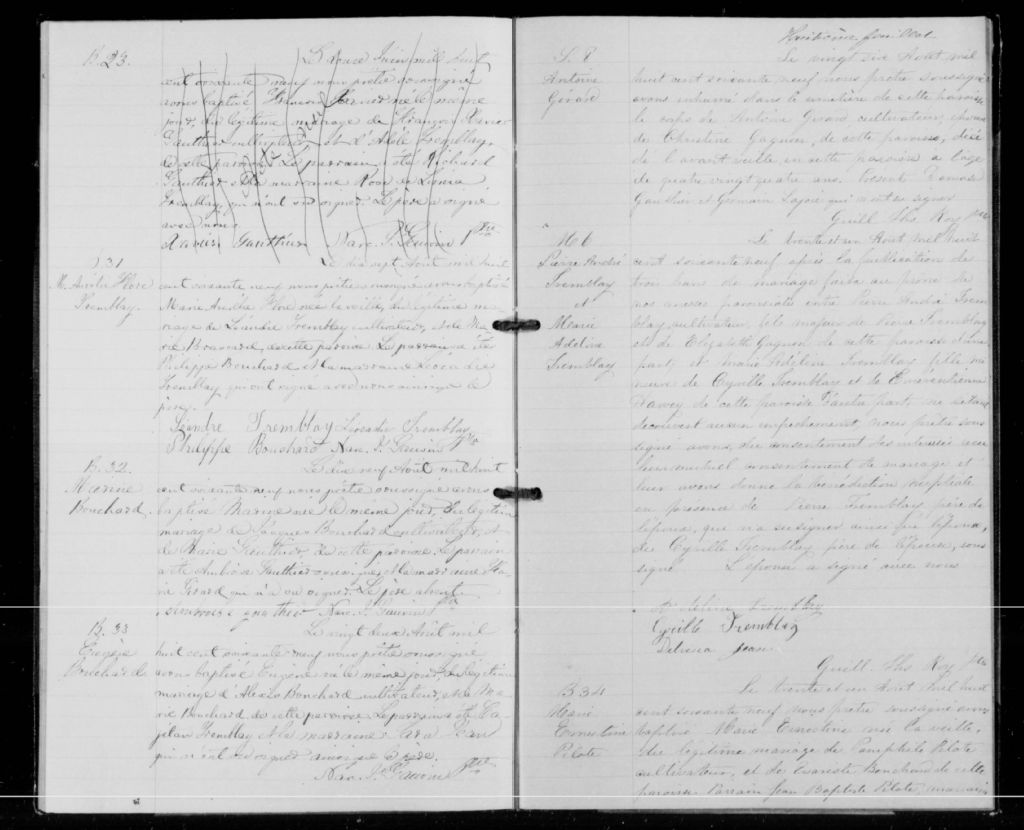 B. 23.
Le douze Juin mil huit
cent soixante neuf nous prêtre soussigné
avons baptisé François Xavier né le même
jour, du légitime mariage de François Xavier
Gauthier cultivateur, et d'Adèle Tremblay,
de cette paroisse. Le parrain a été Richard
Gauthier et la marraine Rose de Lima
Tremblay qui n'ont su signer. Le père a signé
avec nous.
Xavier Gauthier Narc. J. Gauvin Ptre
B. 31
M. Aurélie Flore
Tremblay.
Le dix sept Aout mil huit
cent soixante neuf nous prêtre soussigné avons baptisé
Marie Aurélie Flore née la veille, du légitime ma-
riage de Léandre Tremblay cultivateur, et de Ma-
rie Brassard, de cette paroisse. Le parrain a été
Philippe Bouchard et la marraine Léocadie
Tremblay qui ont signé avec nous ainsi que le
père.
Léandre Tremblay Léocadie Tremblay
Philippe Bouchard Narc. J. Gauvin Ptre
B. 32
Marie
Bouchard
Le dix neuf Aout mil huit
cent soixante neuf nous prêtre soussigné avons
baptisé née le même jour, du légitime
mariage de Jacques Bouchard cultivateur, et
de Marie Gauthier, de cette paroisse. Le parrain
a été Ambroise Gauthier soussigné, et la marraine Ma-
rie Girard qui n'a su signer. Le père absent.
Ambroise Gauthier Narc. J. Gauvin Ptre
B. 33
Eugène
Bouchard
Le vingt deux Aout mil
huit cent soixante neuf nous prêtre soussigné
avons baptisé Eugène né le même jour, du légitime
mariage d'Alexis Bouchard cultivateur, et de Ma-
rie Bouchard de cette paroisse. Le parrain a été
Tremblay et la marraine
qui n'ont su signer ainsi que le père.
Narc. J. Gauvin Ptre
Huitième feuillet
S. 8
Antoine
Girard
Le vingt six Aout mil
huit cent soixante neuf nous prêtre soussigné
avons inhumé dans le cimetière de cette paroisse
le corps de Antoine Girard cultivateur, époux
de Christine Gagnon, de cette paroisse, décé-
dé l'avant veille en cette paroisse à l'âge
de quatre vingt quatre ans. Présent
Gauthier et Germain Lajoie qui n'ont su signer
Guill. Ths Roy Ptre
M. 6
Pierre André
Tremblay
et
Marie
Adéline
Tremblay
Le trente et un Aout mil huit
cent soixante neuf après la publication de
trois bans de mariage faite au prône de
nos messes paroissiales entre Pierre André Trem
blay, cultivateur, fils majeur de Pierre Tremblay
et de Elizabeth Gagnon de cette paroisse d'une
part; et Marie Adéline Tremblay fille mi-
neure de Cyrille Tremblay et de Emérentienne
de cette paroisse d'autre part; ne s'étant
découvert aucun empêchement, nous prêtre sous
signé avons, du consentement des intéressés reçu
leur mutuel consentement de mariage et
leur avons donné la bénédiction nuptiale
en présence de Pierre Tremblay père de
l'époux, qui n'a su signer ainsi que l'époux,
de Cyrille Tremblay père de l'épouse, sous
signé. L'épouse a signé avec nous
Adéline Tremblay
Cyrille Tremblay
Jean
Guill. Ths Roy Ptre
B 34
Marie
Ernestine
Pilote
Le trente et un Aout mil huit
cent soixante neuf nous prêtre soussigné avons
baptisé Marie Ernestine née la veille,
du légitime mariage de Pamphile Pilote
cultivateur, et de Evariste Bouchard de cette
paroisse. Parrain Jean Baptiste Pilote, marraine